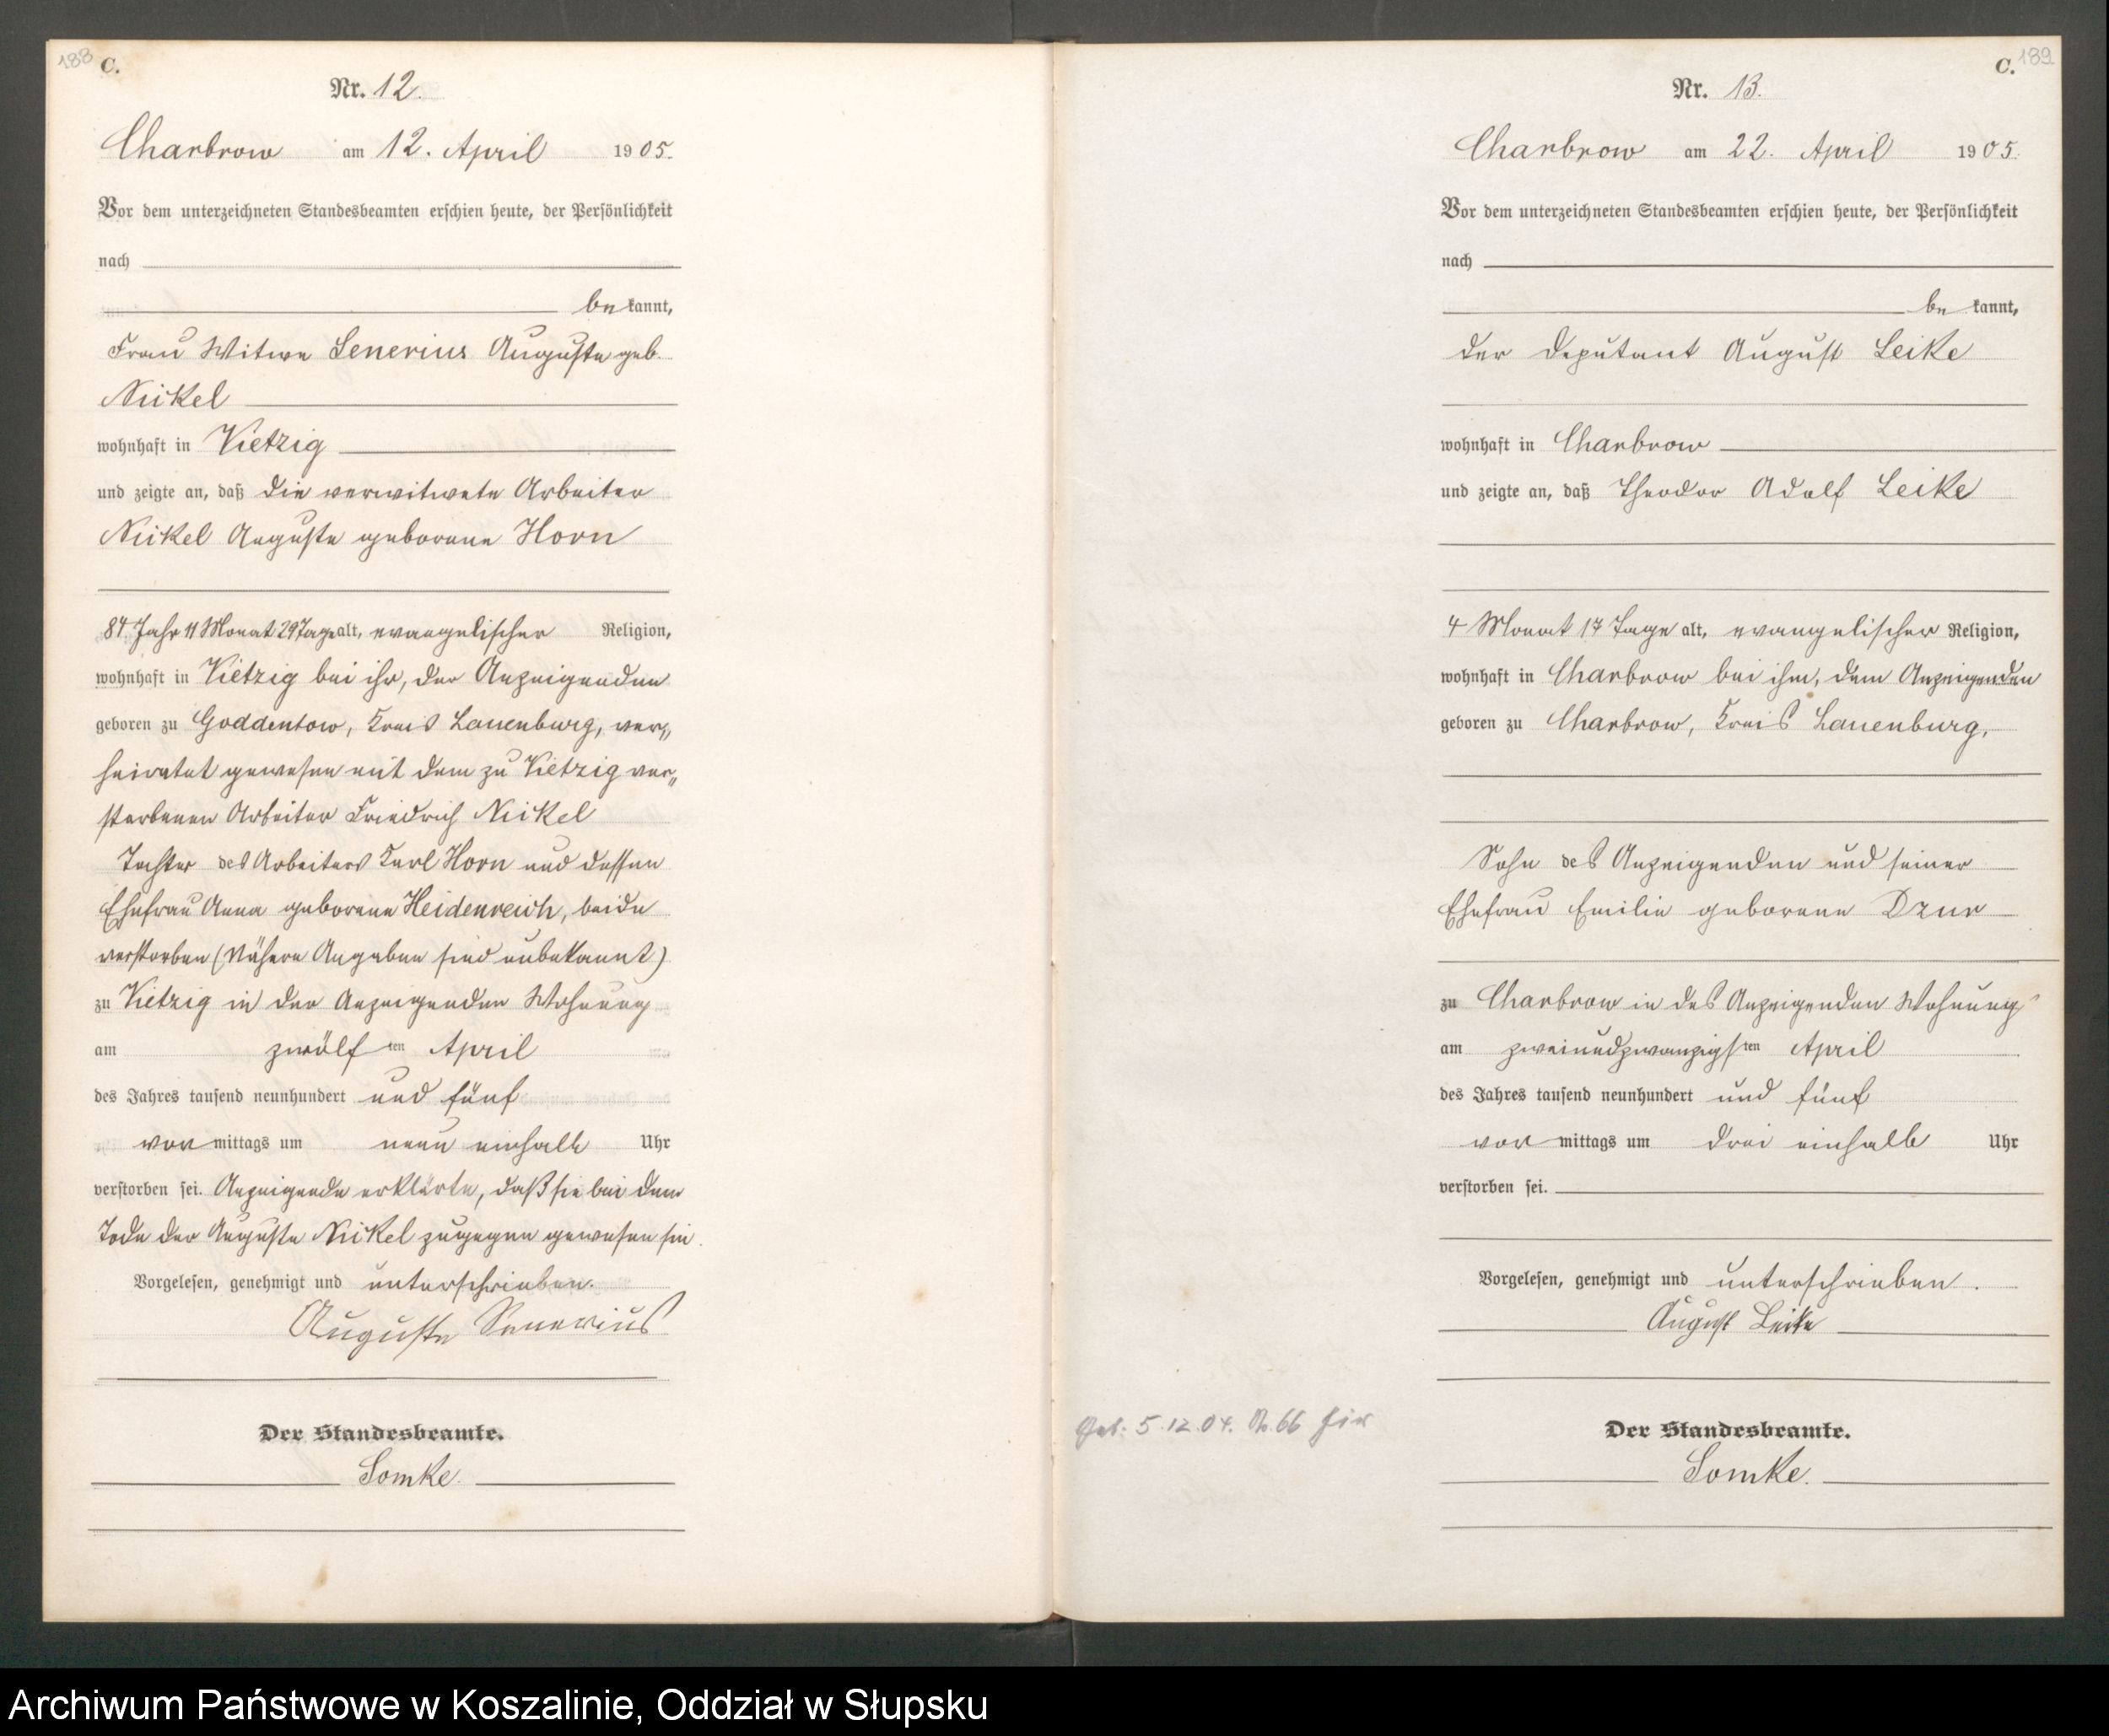 188 C.
Nr. 12.
Charbrow am 12. April 1905.
Vor dem unterzeichneten Standesbeamten erschien heute, der Persönlichkeit
nach
bekannt,
Frau Witwe Senerius Auguste geb.
Nickel
wohnhaft in Vietzig
und zeigte an, daß die verwitwete Arbeiter
Nickel Auguste geborene Horn
84 Jahr 11 Monat 29 Tage alt, evangelischer Religion,
wohnhaft in Vietzig bei ihr, der Anzeigenden
geboren zu Goddentow, Kreis Lauenburg, ver„
heiratet gewesen mit dem zu Vietzig ver„
storbenen Arbeiter Friedrich Nickel
Tochter des Arbeiters Karl Horn und dessen
Ehefrau Anna geborene Heidenreich, beide
verstorben (Nähere Angaben sind unbekannt)
zu Vietzig in der Anzeigenden Wohnung
am zwölften April
des Jahres tausend neunhundert und fünf
vormittags um neun einhalb Uhr
verstorben sei. Anzeigende erklärte, daß sie bei dem
Tode der Auguste Nickel zugegen gewesen sei.
Vorgelesen, genehmigt und unterschrieben.
Auguste Senerius
Der Standesbeamte.
Somke.
C. 189
Nr. 13.
Charbrow am 22. April 1905.
Vor dem unterzeichneten Standesbeamten erschien heute, der Persönlichkeit
nach
bekannt,
der Deputant August Leike
wohnhaft in Charbrow
und zeigte an, daß Theodor Adolf Leike
4 Monat 17 Tage alt, evangelischer Religion,
wohnhaft in Charbrow bei ihm, dem Anzeigenden
geboren zu Charbrow, Kreis Lauenburg,
Sohn des Anzeigenden und seiner
Ehefrau Emilie geborene Dzur
zu Charbrow in des Anzeigenden Wohnung
am zweiundzwanzigsten April
des Jahres tausend neunhundert und fünf
vormittags um drei einhalb Uhr
verstorben sei.
Vorgelesen, genehmigt und unterschrieben.
August Leike
Geb. 5.12.04. N. 66 hier
Der Standesbeamte.
Somke.
Archiwum Państwowe w Koszalinie, Oddział w Słupsku